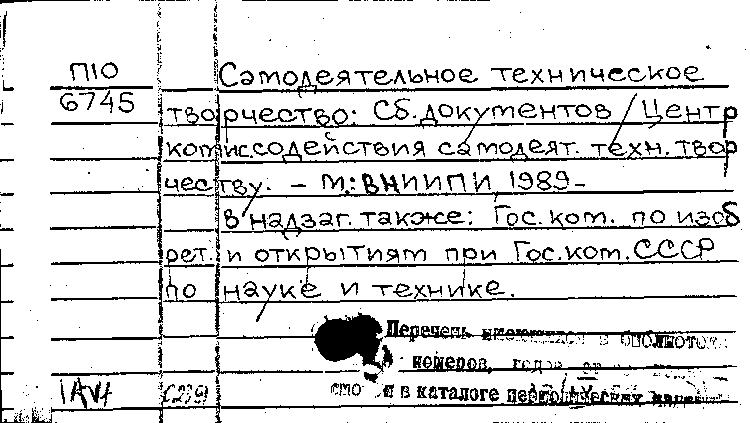 П10
6745
Самодеятельное техническое
творчество: Сб.документов / Центр
комис.содействия самодеят. техн. твор
честву. – М.: ВНИИПИ, 1989–
В надзаг. также: Гос.ком. по изоб
рет. и открытиям при Гос.ком. СССР
по науке и технике.
Перечень имеющихся в библиотек
номеров, годов
смо и в каталоге периодических